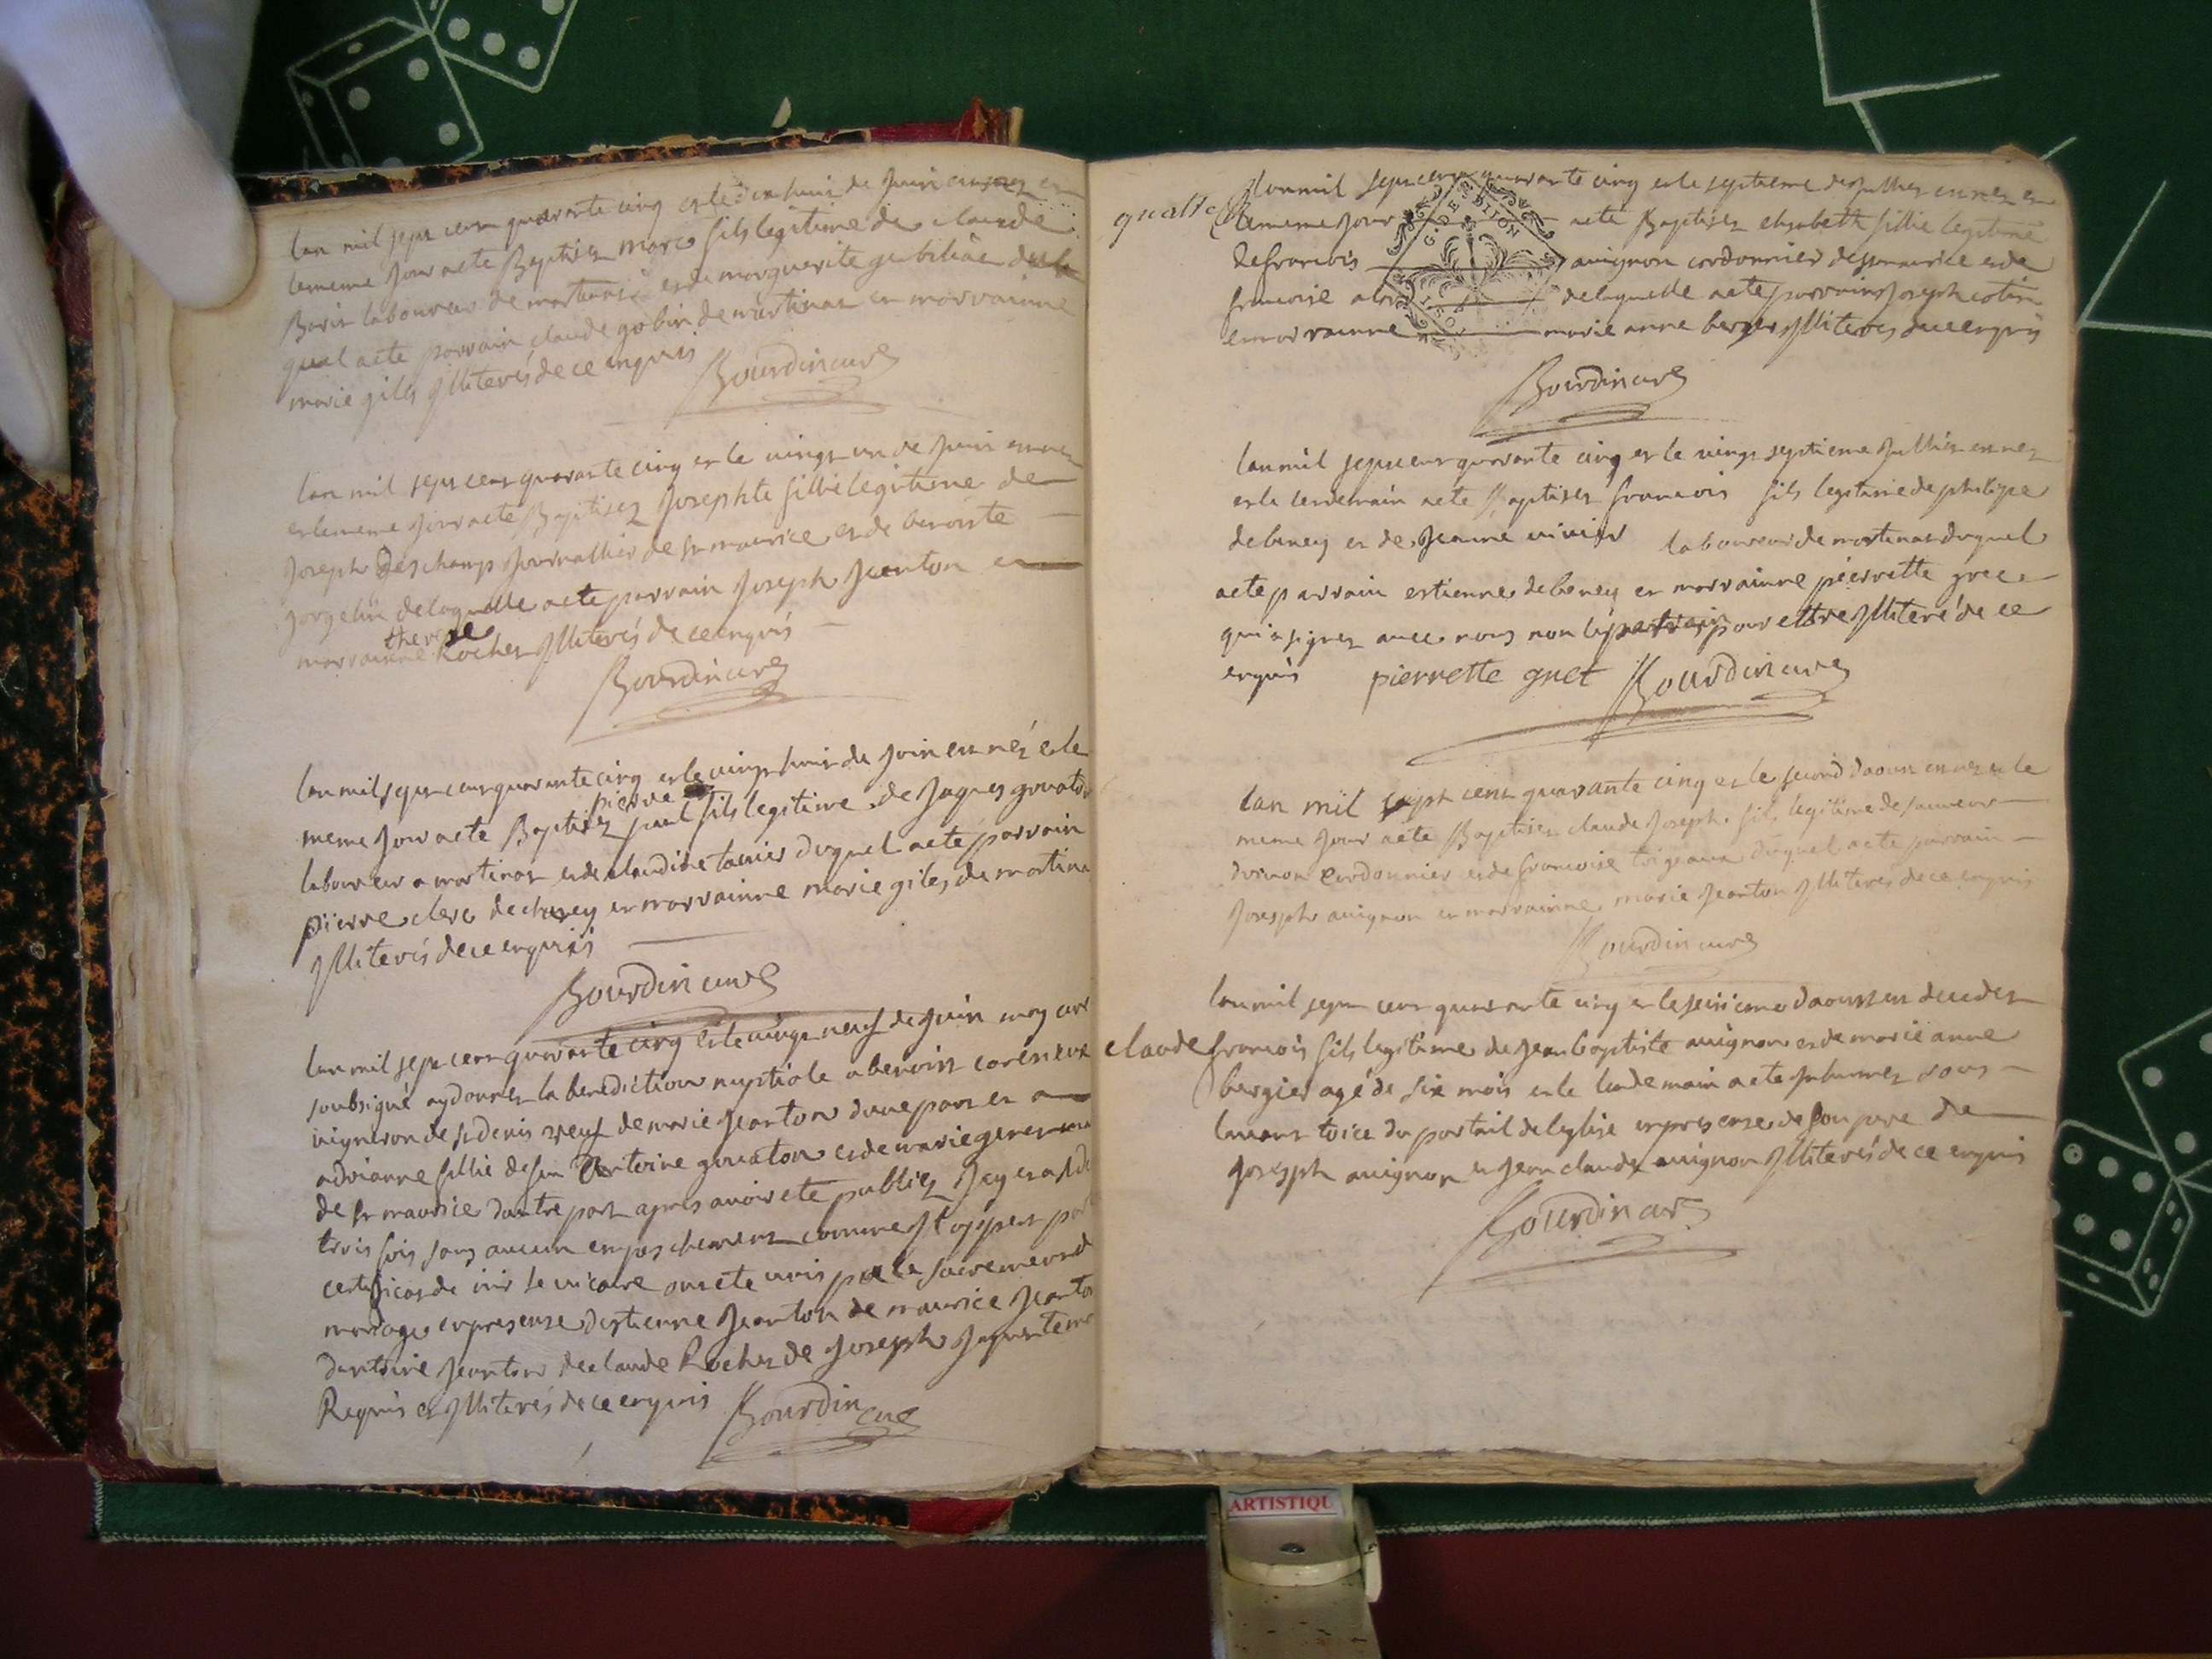 lan mil sept cent quarante cinq et le dix huit de Juin est nez et
le meme Jour a ete Baptisez marc fils legitime de claude
laboureur de martinas et de marguerite
quel a ete parrain claude gobin de martinat et marrainne
marie gills Illiterés de ce enquis
Bourdin curé
lan mil sept cent quarante cinq et le vingt un de Juin est nez
et le meme Jour a ete Baptisez Josephte fillie legitime de
Joseph Deschamps Journallier de st maurice et de benoiste
Jorgelin de laquelle a ete parrain Joseph Jeanton et
therese
marrainne Rochez Illiterés de ce enquis
Bourdin curé
lan mil sept cent quarante cinq et le vingt huit de Juin est néz et le
pierre
meme Jour a ete Baptisez paul fils legitime de Jaques gouaton
laboureur a martinat et de claudine tacnier duquel a ete parrain
pierre clerc de charey et marrainne marie giles de martina
Illiterés de ce enquis
Bourdin curé
lan mil sept cent quarante cinq et le vingt neuf de Juin moy curé
soubsigné ay donnez la benediction nuptiale a benoist
vigneron de st denis veuf de marie Jeanton dune part et a
adrianne fillie de feu Antoine gouaton et de marie
de st maurice dautre part apres avoir ete publiez Icy et a st de
trois fois sans aucun empeschement comme Il appert par
certificat de le vicaire ont ete unis par le sacrement de
mariage en presence destienne Jeanton de maurice Jeanton
dantoine Jeanton de claude Rochez de Joseph
Requis et Illiterés de ce enquis Bourdin
curé
lan mil sept cent quarante cinq et le septieme de Jullet est nez et
quatre le meme Jour a ete Baptisez elisabeth fillie legitime
G. DE DIJON
de francois avignon cordonnier de st maurice et de
francoise de laquelle a ete parrain Joseph cotin
et marrainne marie anne berger Illiteres de ce enquis
Bourdin curé
lan mil sept cent quarante cinq et le vingt septieme Jullet est nez
et le lendemain a ete Baptisez francois fils legitime de philipe
debeney et de Jeanne vivier laboureur de martinas duquel
a ete parrain estienne debeney et marrainne pierrette
qui a signez avec nous non le parrain pour ettre Illiteré de ce
enquis pierrette guet Bourdin curé
lan mil sept cent quarante cinq et le second daoust est nez et le
meme Jour a ete Baptisez claude Joseph fils legitime de sauveur
cordonnier et de francoise duquel a ete parrain
Joseph avignon et marrainne marie Jeanton Illiterés de ce enquis
Bourdin curé
lan mil sept cent quarante cinq et le seisieme daoust est decedez
claude francois fils legitime de Jean baptiste avignon et de marie anne
bergier agé de six mois et le lendemain a ete Inhumez sous
lavant toict du portail de leglise en presence de son pere de
Joseph avignon et Jean claude avignon Illiterés de ce enquis
Bourdin curé
ARTISTIQU